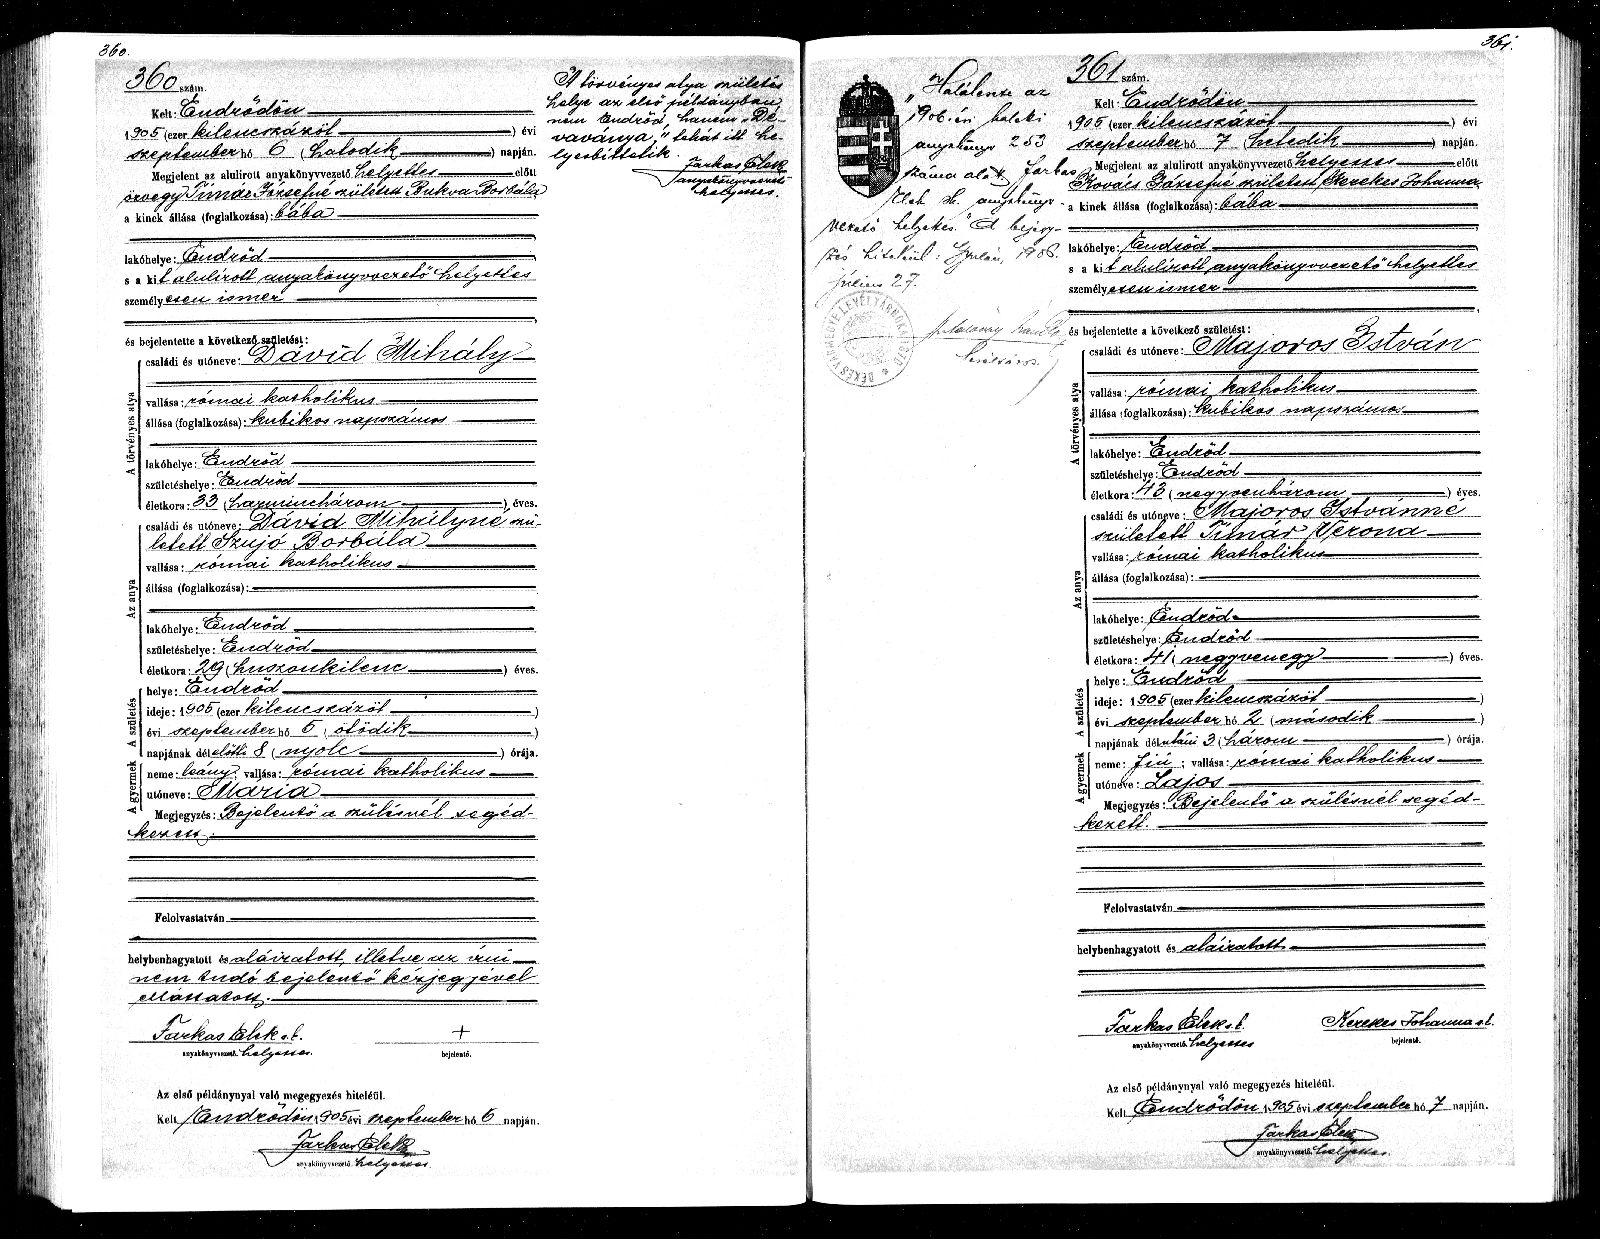 360.
360 szám.
Kelt: Endrődön
1905 (ezer kilenczázöt ) évi
szeptember hó 6 (hatodik ) napján.
Megjelent az alulirott anyakönyvvezető helyettes előtt
özvegy Timár Józsefné született Bukva Borbála
a kinek állása (foglalkozása): bába
lakóhelye: Endrőd
s a kit alulírott anyakönyvvezető helyettes
személyesen ismer
és bejelentette a következő születést:
A törvényes atya
családi és utóneve: Dávid Mihály
vallása: római katholikus
állása (foglalkozása): kubikos napszámos
lakóhelye: Endrőd
születéshelye: Endrőd
életkora: 33 (harminchárom ) éves.
Az anya
családi és utóneve: Dávid Mihályné szü-
letett Szujó Borbála
vallása: római katholikus
állása (foglalkozása):
lakóhelye: Endrőd
születéshelye: Endrőd
életkora: 29 (huszonkilenc ) éves.
A születés
helye: Endrőd
ideje: 1905 (ezer kilenczázöt )
évi szeptember hó 5 (ötödik )
napjának délelőtti 8 (nyolc ) órája.
A gyermek
neme: leány; vallása: római katholikus
utóneve: Mária
Megjegyzés: Bejelentő a szülésnél segéd-
kezett.
Felolvastatván
helybenhagyatott és aláiratott, illetve az írni
nem tudó bejelentő kézjegyével
elláttatott.
Farkas Elek s.k. +
anyakönyvvezető. helyettes. bejelentő.
Az első példánynyal való megegyezés hiteléül.
Kelt Endrődön 1905 évi szeptember hó 6 napján.
Farkas Elek
anyakönyvvezető. helyettes.
A törvényes atya születés
helye az első példányban
nem Endrőd, hanem „Dé-
vaványa," tehát itt he-
lyesbittetik.
Farkas Elek
anyakönyvvezető
helyettes.
361.
„Halálesete az
1906. évi haláli
anyakönyv 253
száma alatt. Farkas
Elek sk. anyakönyv-
vezető helyettes." A bejegy-
zés hiteléül: Gyulán, 1906.
július 27.
BÉKÉSVÁRMEGYE LEVÉLTÁRNOKÁTÓL
361 szám.
Kelt: Endrődön
1905 (ezer kilenczázöt ) évi
szeptember hó 7 (hetedik ) napján.
Megjelent az alulirott anyakönyvvezető helyettes előtt
Kovács Józsefné született Kerekes Johanna
a kinek állása (foglalkozása): bába
lakóhelye: Endrőd
s a kit alulírott anyakönyvvezető helyettes
személyesen ismer
és bejelentette a következő születést:
A törvényes atya
családi és utóneve: Majoros István
vallása: római katholikus
állása (foglalkozása): kubikos napszámos
lakóhelye: Endrőd
születéshelye: Endrőd
életkora: 43 (negyvenhárom ) éves.
Az anya
családi és utóneve: Majoros Istvánné
született Timár Verona
vallása: római katholikus
állása (foglalkozása):
lakóhelye: Endrőd
születéshelye: Endrőd
életkora: 41 (negyvenegy ) éves.
A születés
helye: Endrőd
ideje: 1905 (ezer kilenczázöt )
évi szeptember hó 2 (második )
napjának délutáni 3 (három ) órája.
A gyermek
neme: fiú; vallása: római katholikus
utóneve: Lajos
Megjegyzés: Bejelentő a szülésnél segéd-
kezett.
Felolvastatván
helybenhagyatott és aláiratott
Farkas Elek s.k. Kerekes Johanna s.k.
anyakönyvvezető. helyettes bejelentő.
Az első példánynyal való megegyezés hiteléül.
Kelt Endrődön 1905 évi szeptember hó 7 napján.
Farkas Elek
anyakönyvvezető. helyettes.